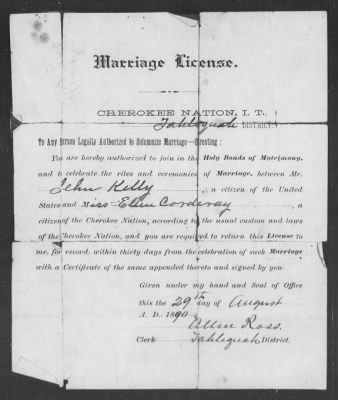 Marriage License.
CHEROKEE NATION, I. T.,
Tahlequah DISTRICT.
To Any Person Legally Authorized to Solemnize Marriage—Greeting:
You are hereby authorized to join in the Holy Bonds of Matrimony,
and to celebrate the rites and ceremonies of Marriage, between Mr.
John Kelly, a citizen of the United
States and Miss Ellen Corderay, a
citizen of the Cherokee Nation, according to the usual custom and laws
of the Cherokee Nation, and you are required to return this License to
me, for record, within thirty days from the celebration of such Marriage
with a Certificate of the same appended thereto and signed by you.
Given under my hand and Seal of Office
this the 29th day of August
A. D. 1890
Allen Ross,
Clerk Tahlequah District.